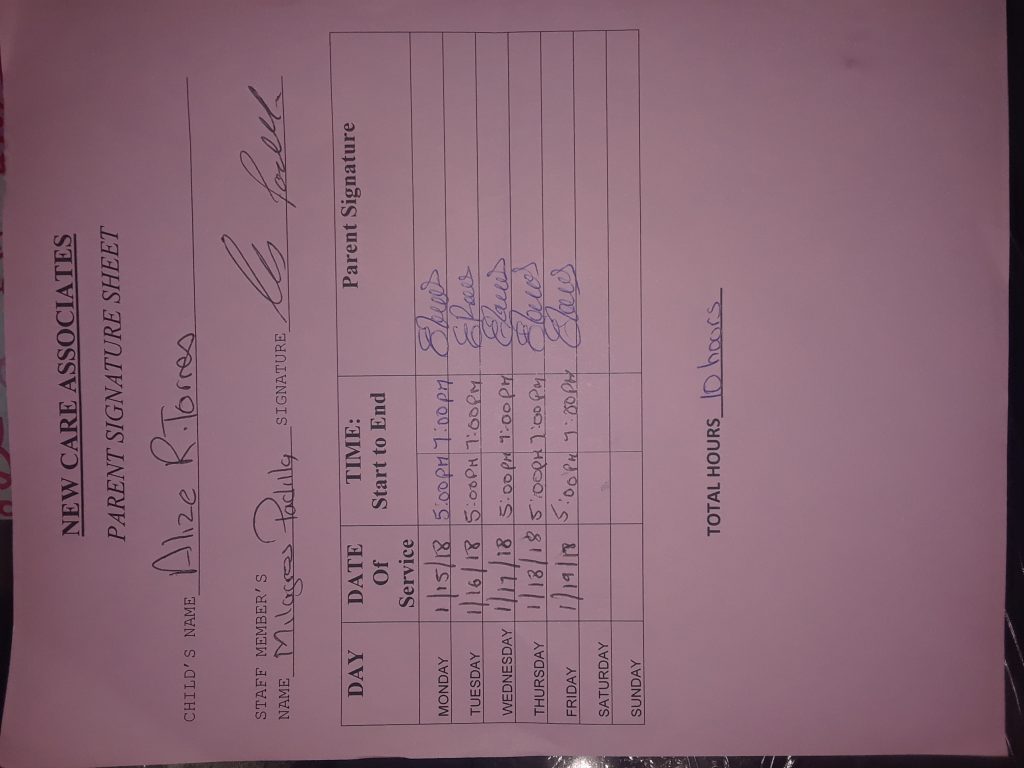 NEW CARE ASSOCIATES
PARENT SIGNATURE SHEET
CHILD'S NAME Alize R. Torres
STAFF MEMBER'S
NAME Milagros Padilla SIGNATURE
DAY DATE Of Service TIME: Start to End Parent Signature
MONDAY 1/15/18 5:00PM 7:00PM
TUESDAY 1/16/18 5:00PM 7:00PM
WEDNESDAY 1/17/18 5:00PM 7:00PM
THURSDAY 1/18/18 5:00PM 7:00PM
FRIDAY 1/19/18 5:00PM 7:00PM
SATURDAY
SUNDAY
TOTAL HOURS 10 hours